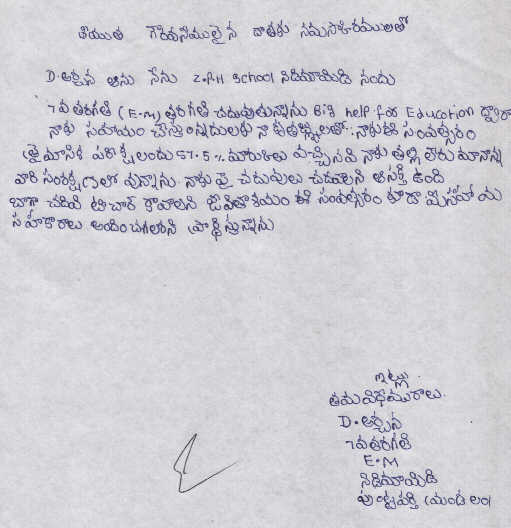 శ్రీయుత గౌరవనీయులైన దాతకు నమస్కారములతో
D. అర్చన అను నేను Z.P.H School నిడిమామిడి నందు
7వతరగతి (E.M) తరగతి చదువుతున్నాను Big help for Education ద్వారా
నాకు సహాయం చేస్తున్నందులకు నా కృతజ్ఞతలతో. నాకు ఈ సంవత్సరం
త్రైమాసిక పరీక్షలందు 57.5% మార్కులు వచ్చినవి నాకు తల్లి లేరు మా నాన్న
వారి సంరక్షణలో వున్నాను. నాకు పై చదువులు చదవాలని ఆసక్తి ఉంది
బాగా చదివి టీచర్ కావాలని జీవితాశయం ఈ సంవత్సరం కూడా మీ సహాయ
సహకారాలు అందించగలరని ప్రార్థిస్తున్నాను
ఇట్లు
తమ విధేయురాలు.
D. అర్చన
7వతరగతి
E.M
నిడిమామిడి
పుట్టపర్తి (మండలం)